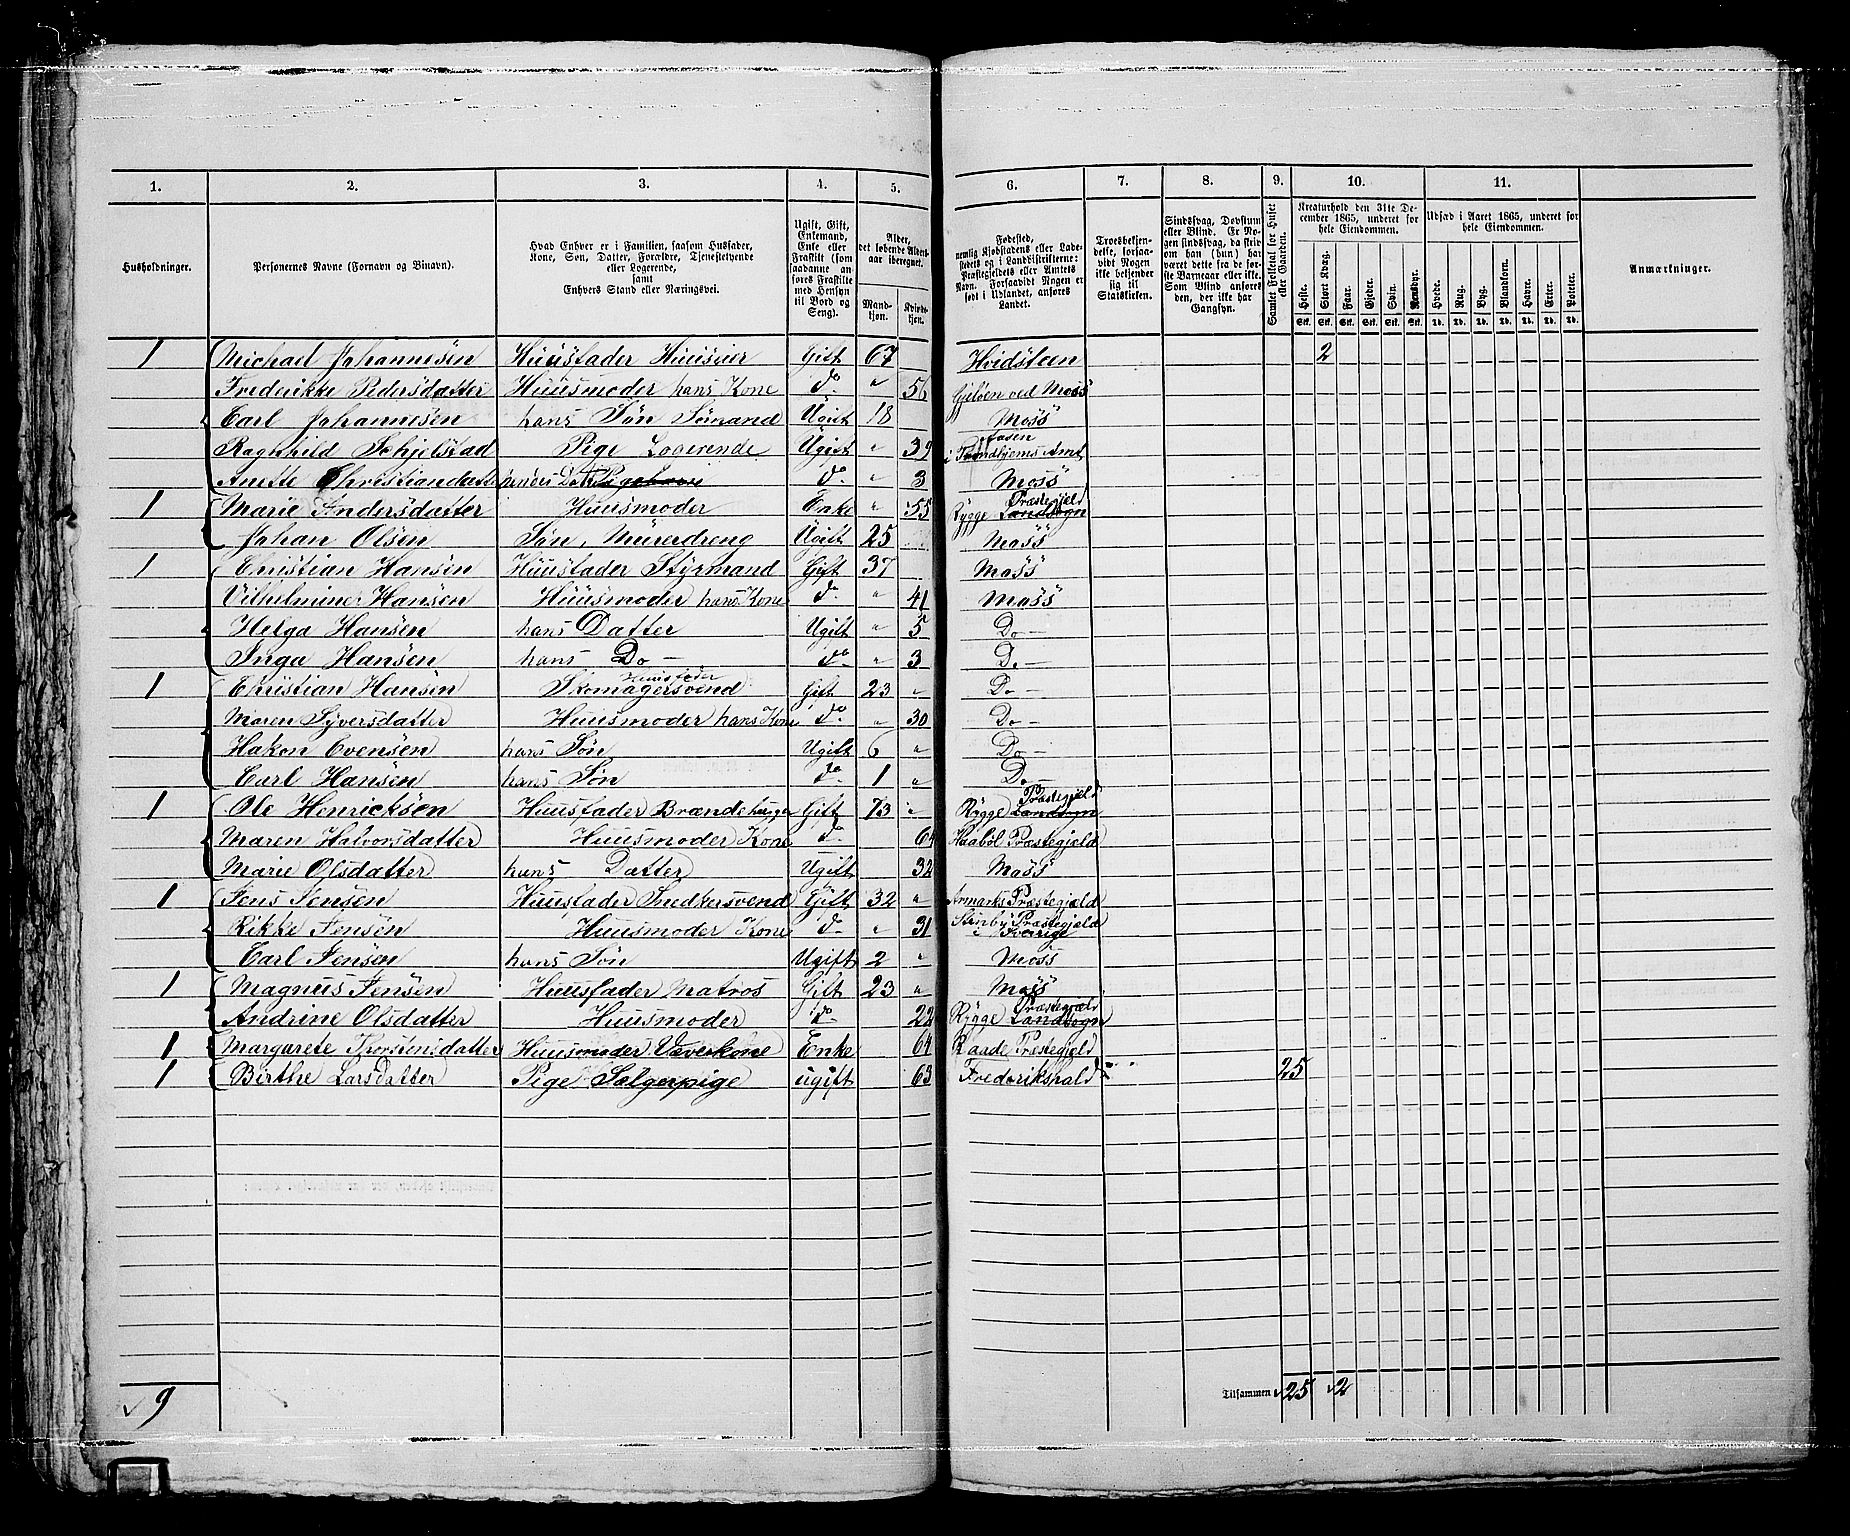 1. 2. 3. 4. 5. 6. 7. 8. 9. 10. 11.
Husholdninger.
Personernes Navne (Fornavn og Binavn).
Hvad Enhver er i Familien, saasom Husfader,
Kone, Søn, Datter, Forældre, Tjenestetyende
eller Logerende,
samt
Enhvers Stand eller Næringsvei.
Ugift, Gift,
Enkemand,
Enke eller
Fraskilt (som
saadanne an-
føres Fraskilte
med Hensyn
til Bord og
Seng).
Alder,
det løbende Alders-
aar iberegnet.
Mand-
kjøn.
Kvinde-
kjøn.
Fødested,
nemlig Kjøbstadens eller Lade-
stedets og i Landdistrikterne:
Præstegjeldets eller Amtets
Navn. Forsaavidt Nogen er
født i Udlandet, anføres
Landet.
Troesbekjen-
delse, forsaa-
vidt Nogen
ikke bekjender
sig til
Statskirken.
Sindssvag, Døvstum
eller Blind. Er No-
gen sindssvag, da skriv
om han (hun) har
været dette fra de før-
ste Barneaar eller ikke.
Som Blind anføres
den, der ikke har
Gangsyn.
Samlet Folketal for Huset
eller Gaarden.
Kreaturhold den 31te De-
cember 1865, underet for
hele Eiendommen.
Heste. Stort Kvæg. Faar. Gjeder. Svin. Rensdyr.
Stk. Stk. Stk. Stk. Stk. Stk.
Udsæd i Aaret 1865, underet for
hele Eiendommen.
Hvede. Rug. Byg. Blandkorn. Havre. Erter. Poteter.
Td. Td. Td. Td. Td. Td. Td.
Anmærkninger.
1 Michael Johannesen Huusfader Huuseier Gift 67 Hvidsteen 2
Frederikke Pedersdatter Huusmoder hans Kone do " 56 Gjeløen ved Moss
Carl Johannesen hans Søn Sømand Ugift 18 Moss
Ragnhild Schjelstad Pige Logerende Ugift " 39 i Trondhjems Amt
Anette Christiandatter hendes Dat. do " 3 Moss
1 Marie Andersdatter Huusmoder Enke " 55 Rygge Landsogn Præstegjeld
Johan Olsen Søn, Murerdreng Ugift 25 Moss
1 Christian Hansen Huusfader Styrmand Gift 37 Moss
Vilhelmine Hansen Huusmoder hans Kone do " 41 Moss
Helga Hansen hans Datter Ugift " 5 Do —
Inga Hansen hans Do — do " 3 Do —
1 Christian Hansen Huusfader Skomagersvend Gift 23 " Do —
Maren Syversdatter Huusmoder hans Kone do " 30 Do —
Hakon Evensen hans Søn Ugift 6 " Do —
Carl Hansen hans Søn do 1 " Do —
1 Ole Henricksen Huusfader Brændehugger Gift 73 " Rygge Landsogn Præstegjeld
Maren Halvorsdatter Huusmoder Kone do 64 Haabøl Præstegjeld
Marie Olsdatter hans Datter Ugift 32 Moss
1 Jens Jensen Huusfader Snedkersvend Gift 32 " Aremarks Præstegjeld
Rikke Jensen Huusmoder Kone do " 31 Præstegjeld i Sverige
Carl Jensen hans Søn Ugift 2 " Moss
1 Magnus Jensen Huusfader Matros Gift 23 " Moss
Andrine Olsdatter Huusmoder do 22 Rygge Landsogn Præstegjeld
1 Margarete Thorstensdatter Huusmoder Væverkone Enke 64 Raade Præstegjeld
1 Birthe Larsdatter Pige Selgerpige ugift 63 Frederikshald 25
9
Tilsammen 25 2